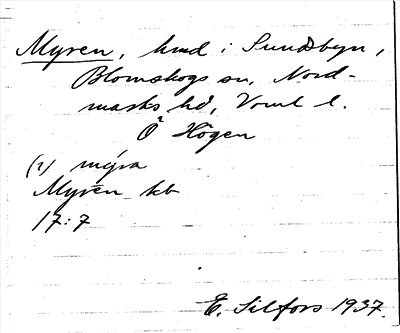 Myren, hmd i Sundsbyn,
Blomskogs sn, Nord-
marks hd, Vrml l.
Ö Högen
(?) mýra
Myren kb
17:7
E. Silfors 1937.